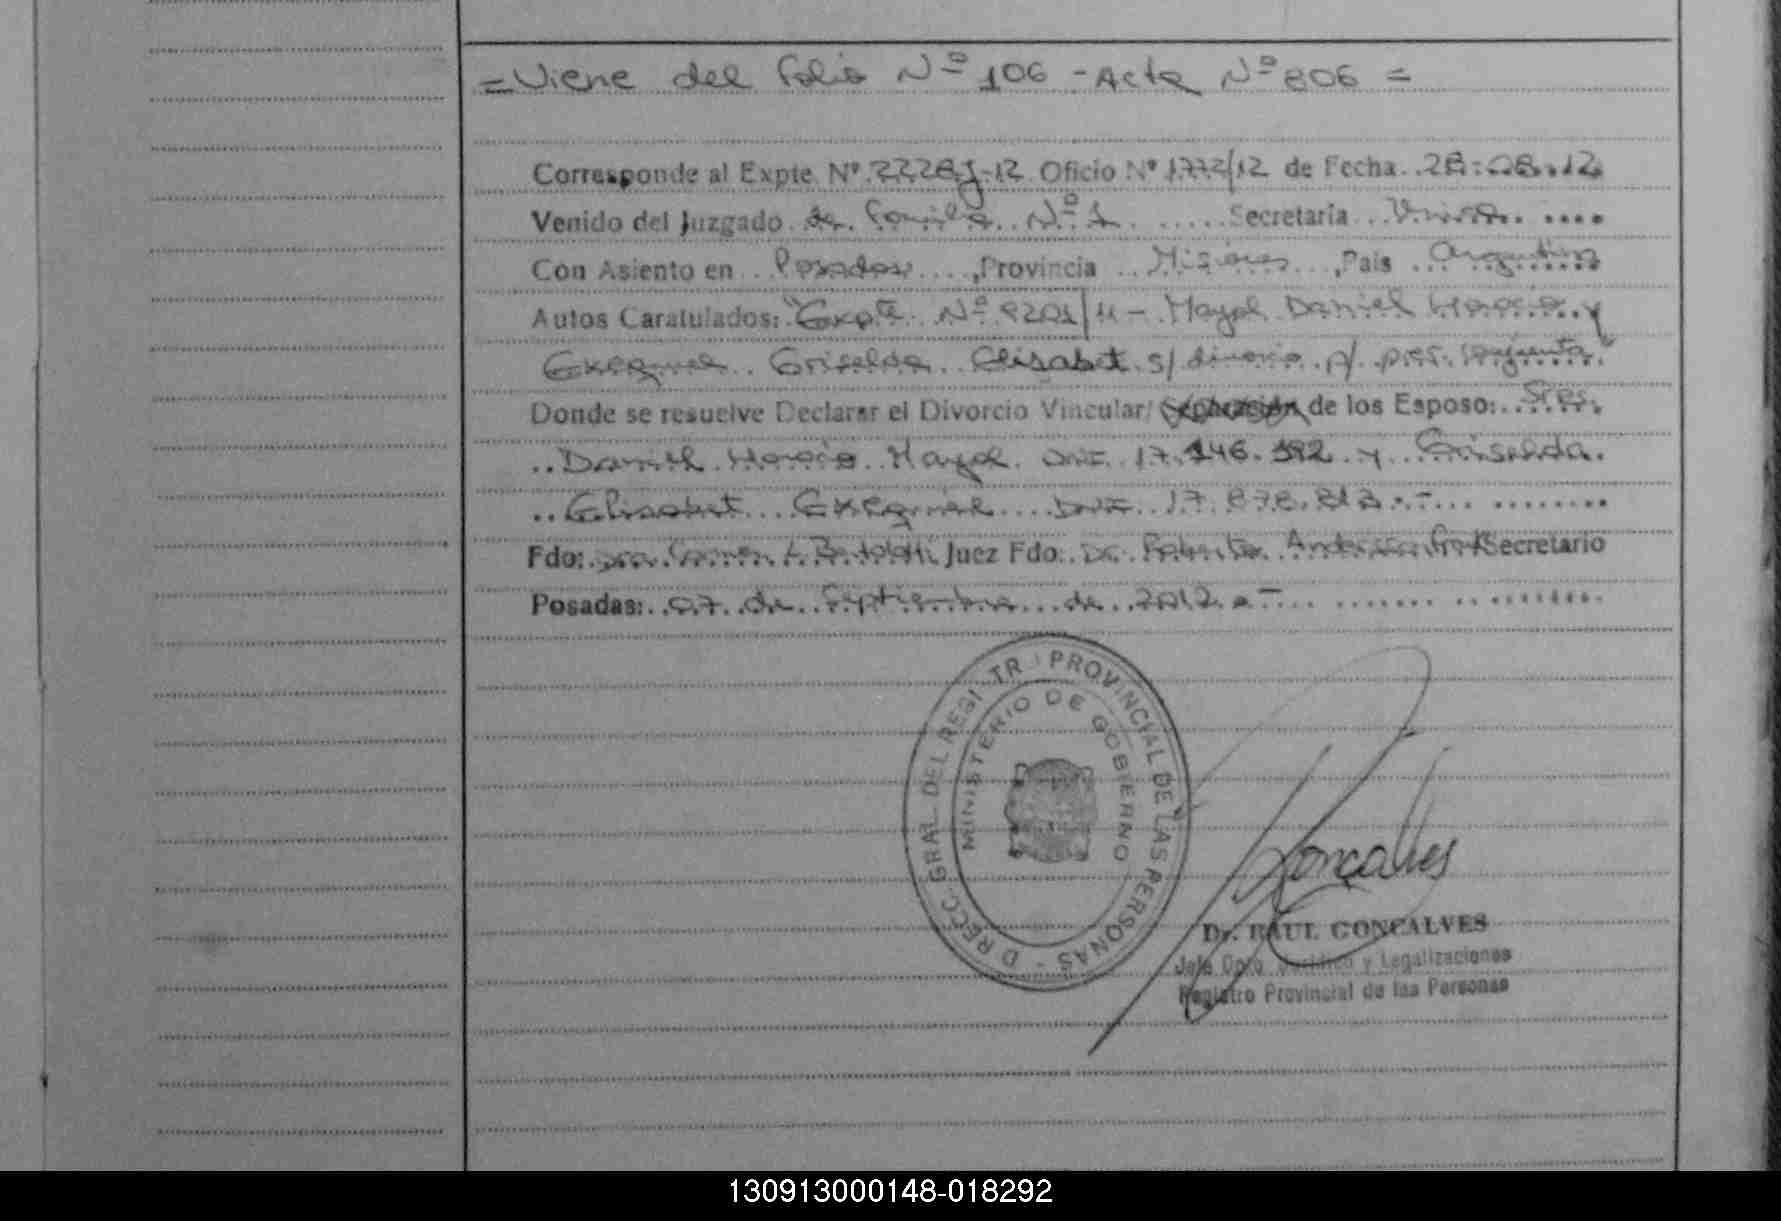 = Viene del folio Nº 106 - Acta Nº 806 =
Corresponde al Expte Nº 2228-J-12 Oficio Nº 1772/12 de Fecha 28-08-12
Venido del Juzgado de Familia Nº 1 Secretaría Única
Con Asiento en Posadas, Provincia Misiones, País Argentina
Autos Caratulados: "Expte Nº 9201/11 - Mayol Daniel Horacio y
Exequiel Griselda Elisabet s/ divorcio p/ pres. conjunta"
Donde se resuelve Declarar el Divorcio Vincular/ Separación de los Esposo: Sres.
Daniel Horacio Mayol DNI 17.146.192 y Griselda
Elisabet Exequiel DNI 17.878.813.-
Fdo: Dra. Carmen Juez Fdo: Dr. Secretario
Posadas: 07 de Septiembre de 2012.-
D RECC. GRAL DEL REGISTR PROVINCIAL DE LAS PERSONAS -
MINISTERIO DE GOBIERNO
Gonçalves
Dr. RAUL GONCALVES
Jefe Dpto. Jurídico y Legalizaciones
Registro Provincial de las Personas
130913000148-018292